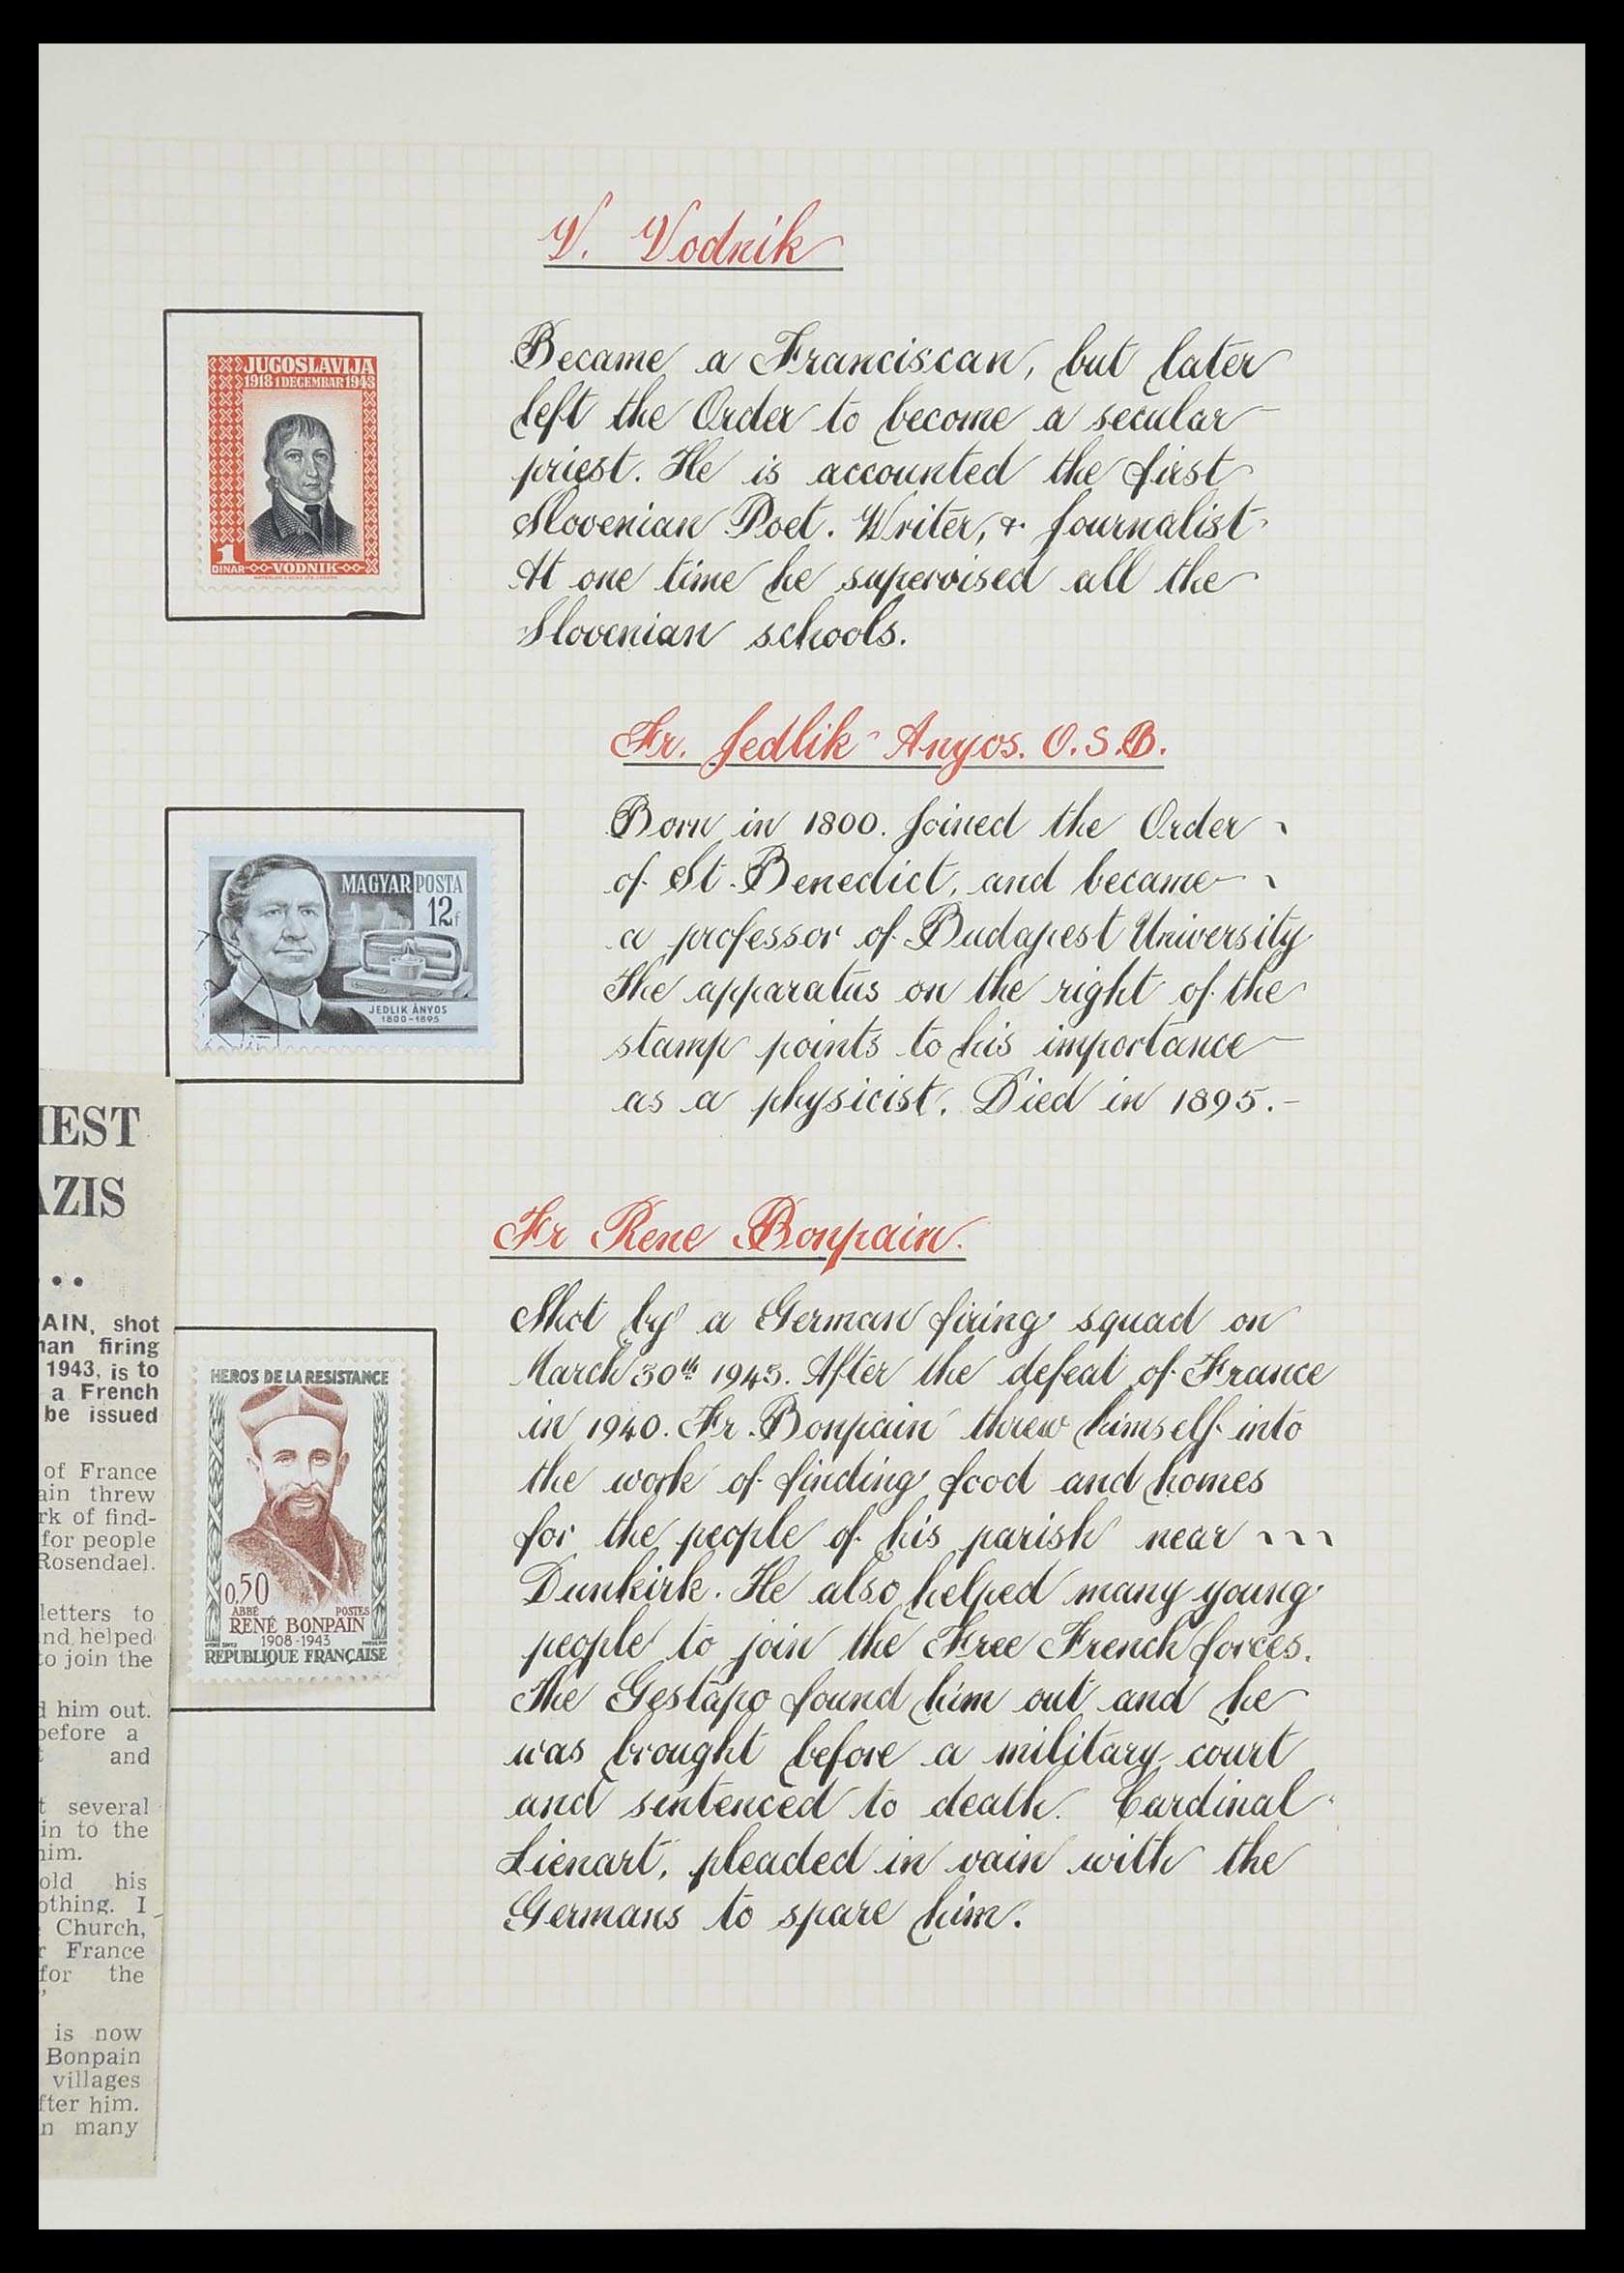 V. Vodnik
JUGOSLAVIJA
1918 1 DECEMBAR 1943
1
DINAR VODNIK
Became a Franciscan, but later
left the Order to become a secular
priest. He is accounted the first
Slovenian Poet. Writer, & Journalist.
At one time he supervised all the
Slovenian schools.
Fr. Jedlik Anyos. O.S.B.
MAGYAR POSTA
12f
JEDLIK ÁNYOS
1800-1895
Born in 1800. Joined the Order
of St. Benedict, and became
a professor of Budapest University
The apparatus on the right of the
stamp points to his importance
as a physicist. Died in 1895.-
IEST
AZIS
...
AIN, shot
man firing
1943, is to
a French
be issued
of France
ain threw
rk of find-
for people
Rosendael.
letters to
nd helped
to join the
him out.
before a
and
several
in to the
him.
old his
othing. I
Church,
France
for the
"
is now
Bonpain
villages
fter him.
n many
Fr Rene Bonpain.
HEROS DE LA RESISTANCE
0,50
ABBÉ POSTES
RENÉ BONPAIN
1908-1943
REPUBLIQUE FRANÇAISE
Shot by a German firing squad on
March 30th 1943. After the defeat of France
in 1940. Fr. Bonpain threw himself into
the work of finding food and homes
for the people of his parish near
Dunkirk. He also helped many young
people to join the Free French forces.
The Gestapo found him out and he
was brought before a military court
and sentenced to death. Cardinal
Lienart, pleaded in vain with the
Germans to spare him.